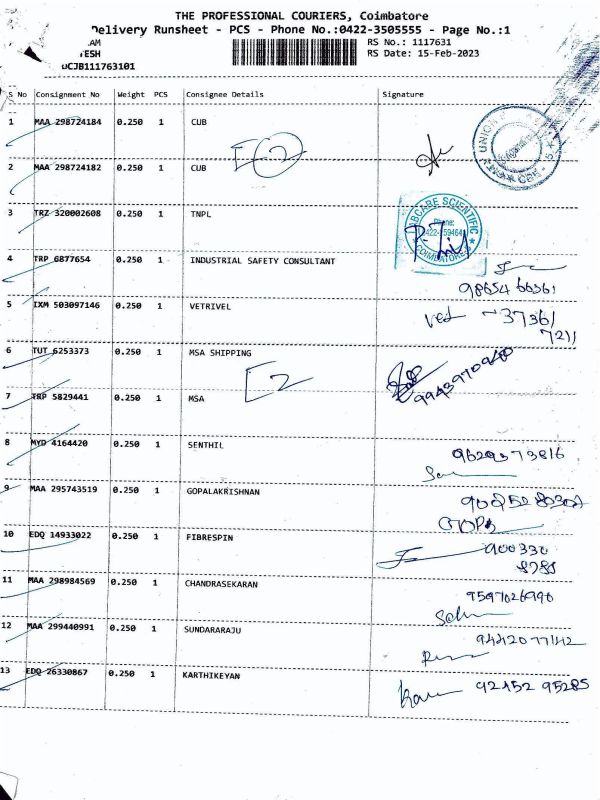 THE PROFESSIONAL COURIERS, Coimbatore
Delivery Runsheet - PCS - Phone No.:0422-3505555 - Page No.:1
RS No.: 1117631
RS Date: 15-Feb-2023
DCJB111763101
S No Consignment No Weight PCS Consignee Details Signature
1 MAA 298724184 0.250 1 CUB
2 MAA 298724182 0.250 1 CUB
2
3 TRZ 320002608 0.250 1 TNPL
4 TRP 6877654 0.250 1 INDUSTRIAL SAFETY CONSULTANT
98654 66361
5 IXM 503097146 0.250 1 VETRIVEL
6 TUT 6253373 0.250 1 MSA SHIPPING
2
9943970940
7 TRP 5829441 0.250 1 MSA
8 MYD 4164420 0.250 1 SENTHIL
9629373816
9 MAA 295743519 0.250 1 GOPALAKRISHNAN
10 EDQ 14933022 0.250 1 FIBRESPIN
900330
8788
11 MAA 298984569 0.250 1 CHANDRASEKARAN
9597026990
12 MAA 299440991 0.250 1 SUNDARARAJU
9442077142
13 EDQ 26330867 0.250 1 KARTHIKEYAN
92452 95285